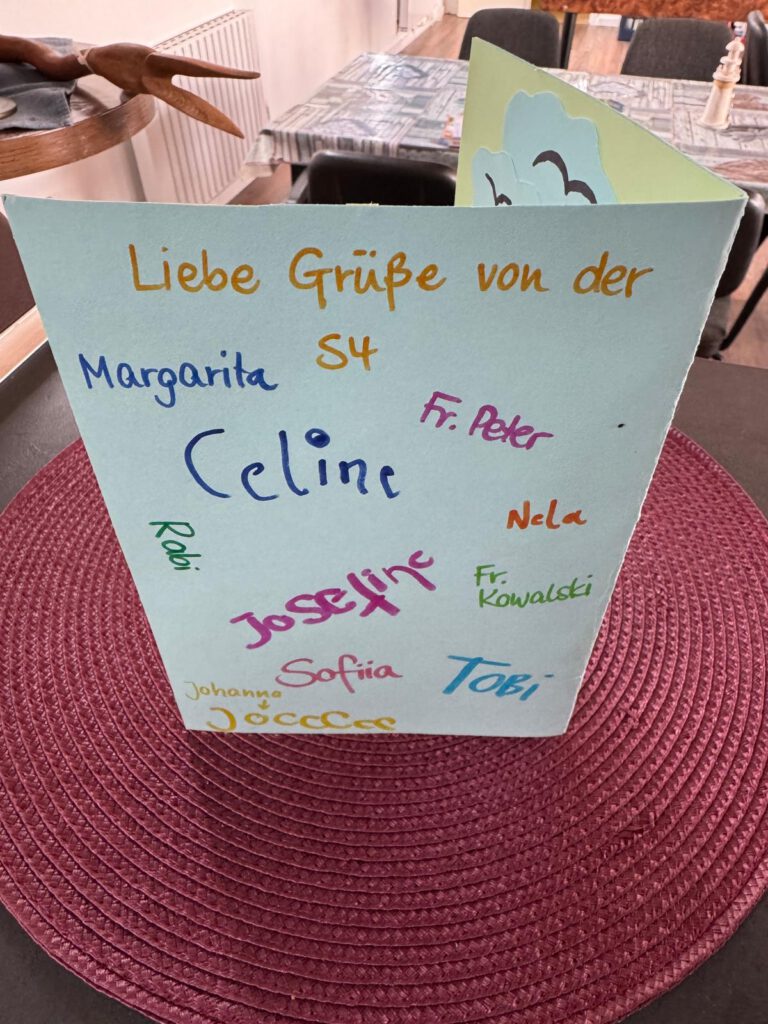 Liebe Grüße von der
S4
Margarita
Fr. Peter
Celine
Nela
Robi
Josefine
Fr.
Kowalski
Sofiia
Tobi
Johanna
JoccCcc